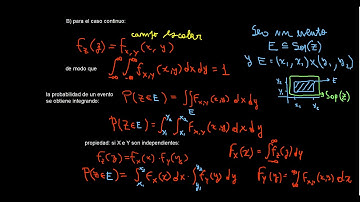 B) para el caso continuo:
campo escalar
f_z(z) = f_{X,Y}(x, y)
de modo que
∫_{-∞}^{∞} ∫_{-∞}^{∞} f_{X,Y}(x,y) dx dy = 1
Sea un evento
E ⊆ Sop(Z)
y E = (x₁, x₂) × (y₁, y₂)
y₂
y₁
x₁ x₂
E
Sop(Z)
la probabilidad de un evento
se obtiene integrando:
P(Z∈E) = ∬_E f_{X,Y}(x,y) dx dy
P(Z∈E) = ∫_{y₁}^{y₂} ∫_{x₁}^{x₂} f_{X,Y}(x,y) dx dy
propiedad: si X e Y son independientes:
f_z(z) = f_X(x) · f_Y(y)
P(Z∈E) = ∫_{x₁}^{x₂} f_X(x) dx · ∫_{y₁}^{y₂} f_Y(y) dy